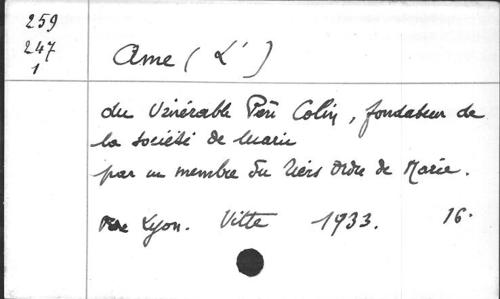 259
247
1
Ame (L')
du Vénérable Père Colin, fondateur de
la société de Marie
par un membre du Tiers Ordre de Marie.
Lyon. Vitte 1933. 16.